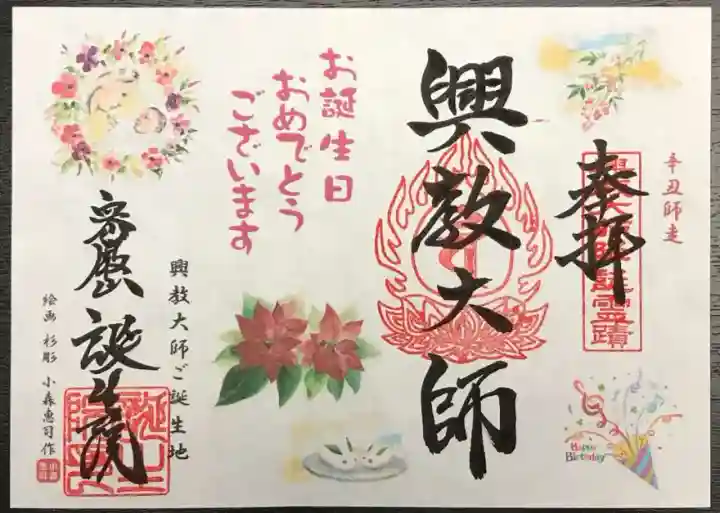 辛丑師走
奉拝
興教大師
お誕生日
おめでとう
ございます
Happy
Birthday
興教大師ご誕生地
誕生院
絵画 杉彫 小森惠司作